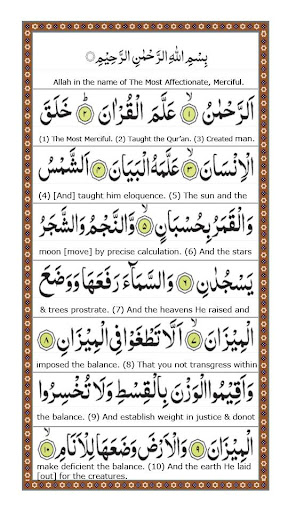 بِسْمِ اللهِ الرَّحْمٰنِ الرَّحِيْمِ
Allah in the name of The Most Affectionate, Merciful.
اَلرَّحْمٰنُ ۝١ عَلَّمَ الْقُرْاٰنَ ۝٢ خَلَقَ
(1) The Most Merciful. (2) Taught the Qur'an. (3) Created man.
الْاِنْسَانَ ۝٣ عَلَّمَهُ الْبَيَانَ ۝٤ اَلشَّمْسُ
(4) [And] taught him eloquence. (5) The sun and the
وَالْقَمَرُ بِحُسْبَانٍ ۝٥ وَّالنَّجْمُ وَالشَّجَرُ
moon [move] by precise calculation. (6) And the stars
يَسْجُدٰنِ ۝٦ وَالسَّمَآءَ رَفَعَهَا وَوَضَعَ
& trees prostrate. (7) And the heavens He raised and
الْمِيْزَانَ ۝٧ اَلَّا تَطْغَوْا فِي الْمِيْزَانِ ۝٨
imposed the balance. (8) That you not transgress within
وَاَقِيْمُوا الْوَزْنَ بِالْقِسْطِ وَلَا تُخْسِرُوا
the balance. (9) And establish weight in justice & donot
الْمِيْزَانَ ۝٩ وَالْاَرْضَ وَضَعَهَا لِلْاَنَامِ ۝١٠
make deficient the balance. (10) And the earth He laid
[out] for the creatures.